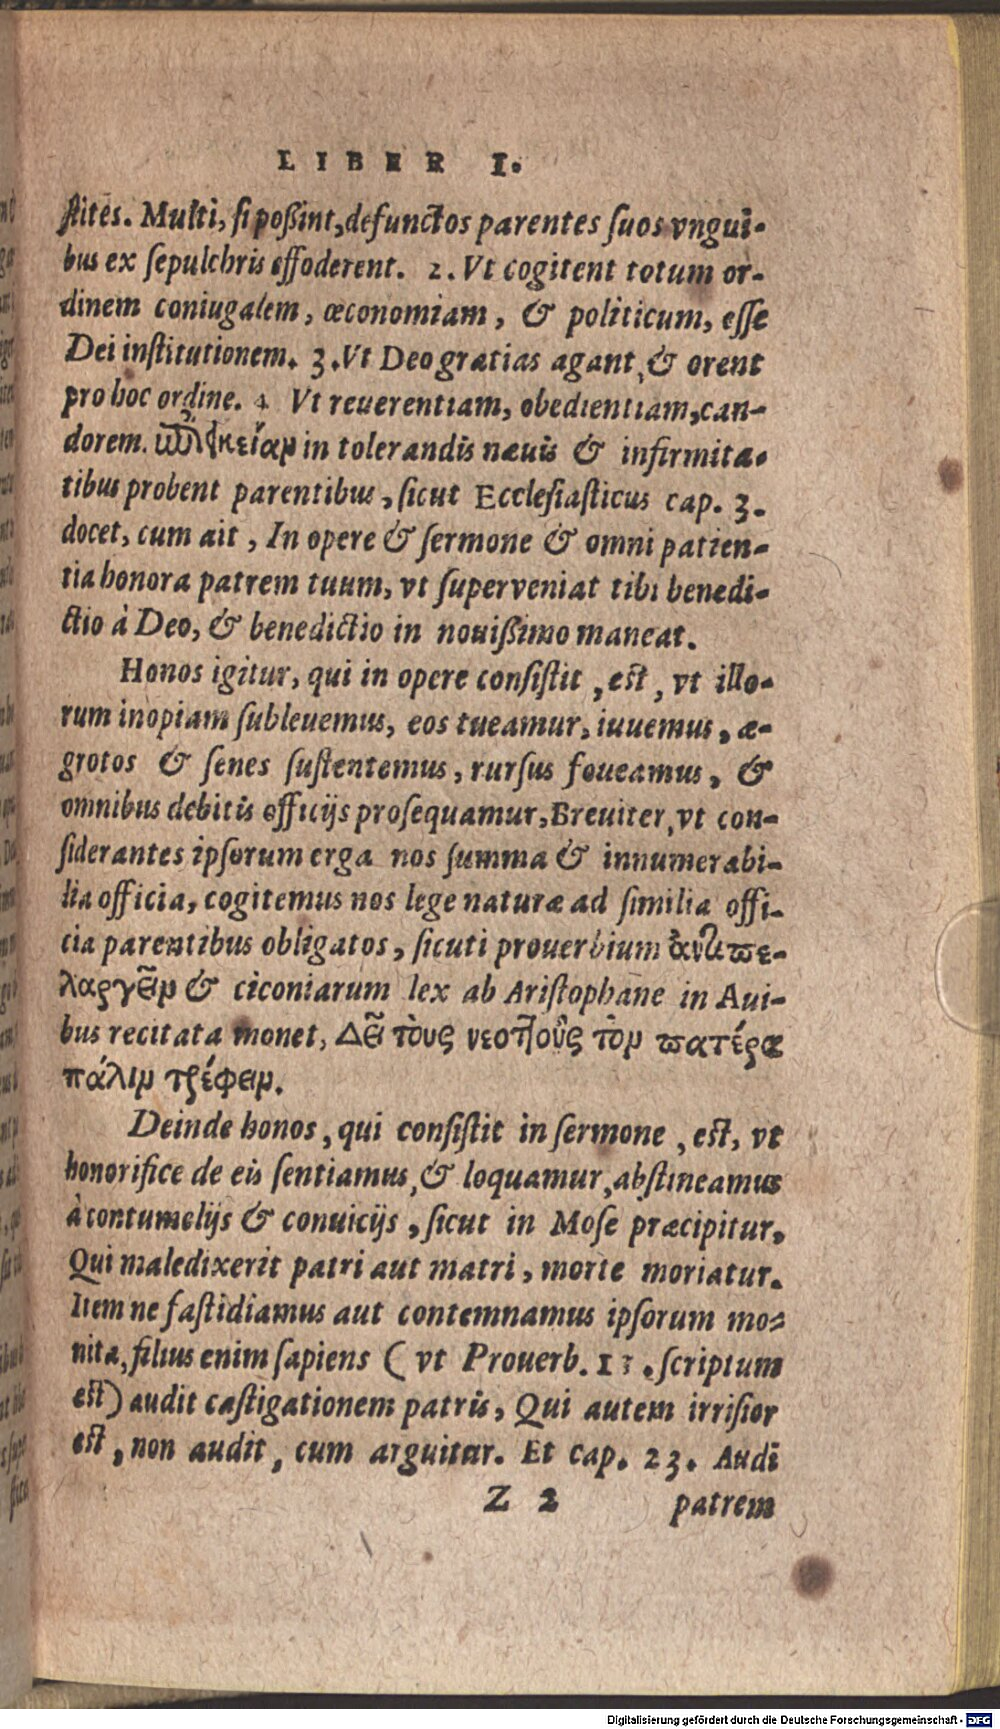 LIBER I.
stites. Multi, si poßint, defunctos parentes suos vngui-
bus ex sepulchris effoderent. 2. Vt cogitent totum or-
dinem coniugalem, œconomiam, & politicum, esse
Dei institutionem. 3. Vt Deo gratias agant, & orent
pro hoc ordine. 4 Vt reuerentiam, obedientiam, can-
dorem. ἐπιείκειαν in tolerandis næuis & infirmita-
tibus probent parentibus, sicut Ecclesiasticus cap. 3.
docet, cum ait, In opere & sermone & omni patien-
tia honora patrem tuum, vt superveniat tibi benedi-
ctio à Deo, & benedictio in nouißimo maneat.
Honos igitur, qui in opere consistit, est, vt illo-
rum inopiam subleuemus, eos tueamur, iuuemus, æ-
grotos & senes sustentemus, rursus foueamus, &
omnibus debitis officijs prosequamur, Breuiter, vt con-
siderantes ipsorum erga nos summa & innumerabi-
lia officia, cogitemus nos lege naturæ ad similia offi-
cia parentibus obligatos, sicuti prouerbium ἀντιπε-
λαργεῖν & ciconiarum lex ab Aristophane in Aui-
bus recitata monet, Δεῖ τοὺς νεοττοὺς τὸν πατέρα
πάλιν τρέφειν.
Deinde honos, qui consistit in sermone, est, vt
honorifice de eis sentiamus, & loquamur, abstineamus
à contumelijs & conuicijs, sicut in Mose præcipitur,
Qui maledixerit patri aut matri, morte moriatur.
Item ne fastidiamus aut contemnamus ipsorum mo-
nita, filius enim sapiens ( vt Prouerb. 13. scriptum
est) audit castigationem patris, Qui autem irrisior
est, non audit, cum arguitur. Et cap. 23. Audi
Z 2 patrem
Digitalisierung gefördert durch die Deutsche Forschungsgemeinschaft - DFG